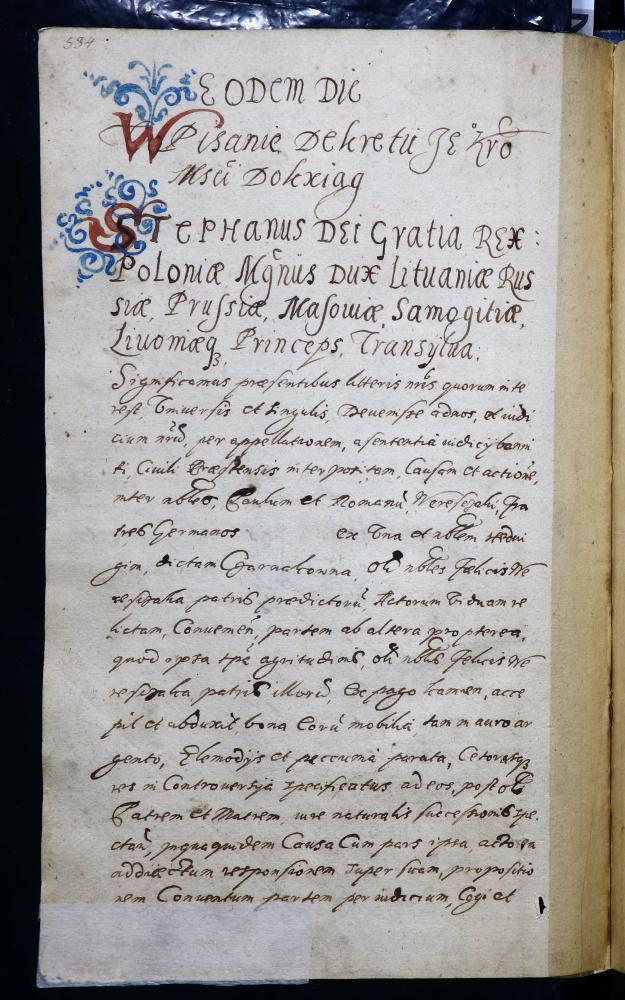 534
EODEM DIE
WPisanie Dekretu JE° Kro
Msci Doksiag
STEPHANUS DEI Gratia REX:
Poloniæ Mgnus Dux Lituaniæ Rus
siæ, Prussiæ, Masouiæ, Samogitiæ,
Liuoniæq3 Princeps, Transylua:
Significamus præsentibus litteris nris quorum inte
rest Vniuersis et singulis, Deuenisse adnos, et iudi
cium nrũ, per appellationem, asententia iudicij banni
ti, Ciuili interpositam, Causam et actionẽ,
inter nbles, Paulum et Romanũ, fra
tres Germanos ex Vna et nblem Hedui
gim, dictam Czarnakowna, oli nbles Fælicis We
patris prædictorũ Actorum Viduam re
lictam, Conuenẽ, partem ab altera, propterea,
quod ipsa tpẽ ægritudinis, oli nblis Felicis We
patris illorũ, Ex pago kamien, acce
pit et abduxit bona Eorũ mobilia, tam in auro ar
gento, Clenodijs et peccunia parata, Ceterasq3
res in Controuersia specificatas ad eos, post oli
Patrem et Matrem, iure naturalis successionis spe
ctañ, inqua quidem Causa Cum pars ipsa,
addirectum responsionem super suam, propositio
nem Conuentam partem per iudicium, Cogi et